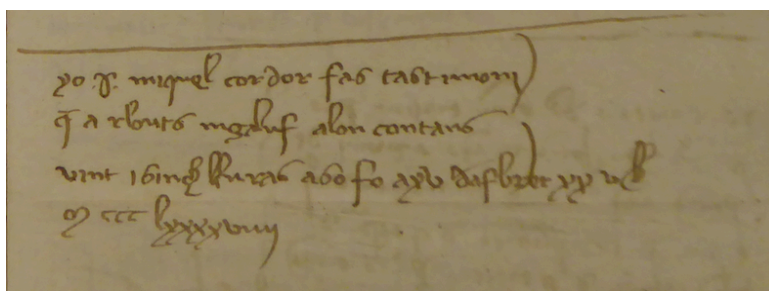 yo .p. miquel cordor fas tastimoni
q̄ a rbuts alou contans
vint i sinch liuras aso fo a xv dafbrer xx v
m ccc lxxxxviiii